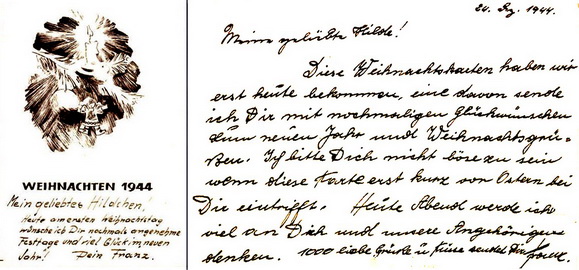 WEIHNACHTEN 1944
Mein geliebtes Hildchen!
Heute am ersten Weihnachtstag
wünsche ich Dir nochmals angenehme
Festtage und viel Glück im neuen
Jahr! Dein Franz.
24. Dez. 1944.
Meine geliebte Hilde!
Diese Weihnachtskarten haben wir
erst heute bekommen, eine davon sende
ich Dir mit nochmaligen Glückwünschen
zum neuen Jahr und Weihnachtsgrü-
ßen. Ich bitte Dich nicht böse zu sein
wenn diese Karte erst kurz vor Ostern bei
Dir eintrifft. Heute Abend werde ich
viel an Dich und unsere Angehörigen
denken. 1000 liebe Grüße u. Küsse sendet Dir Franz.